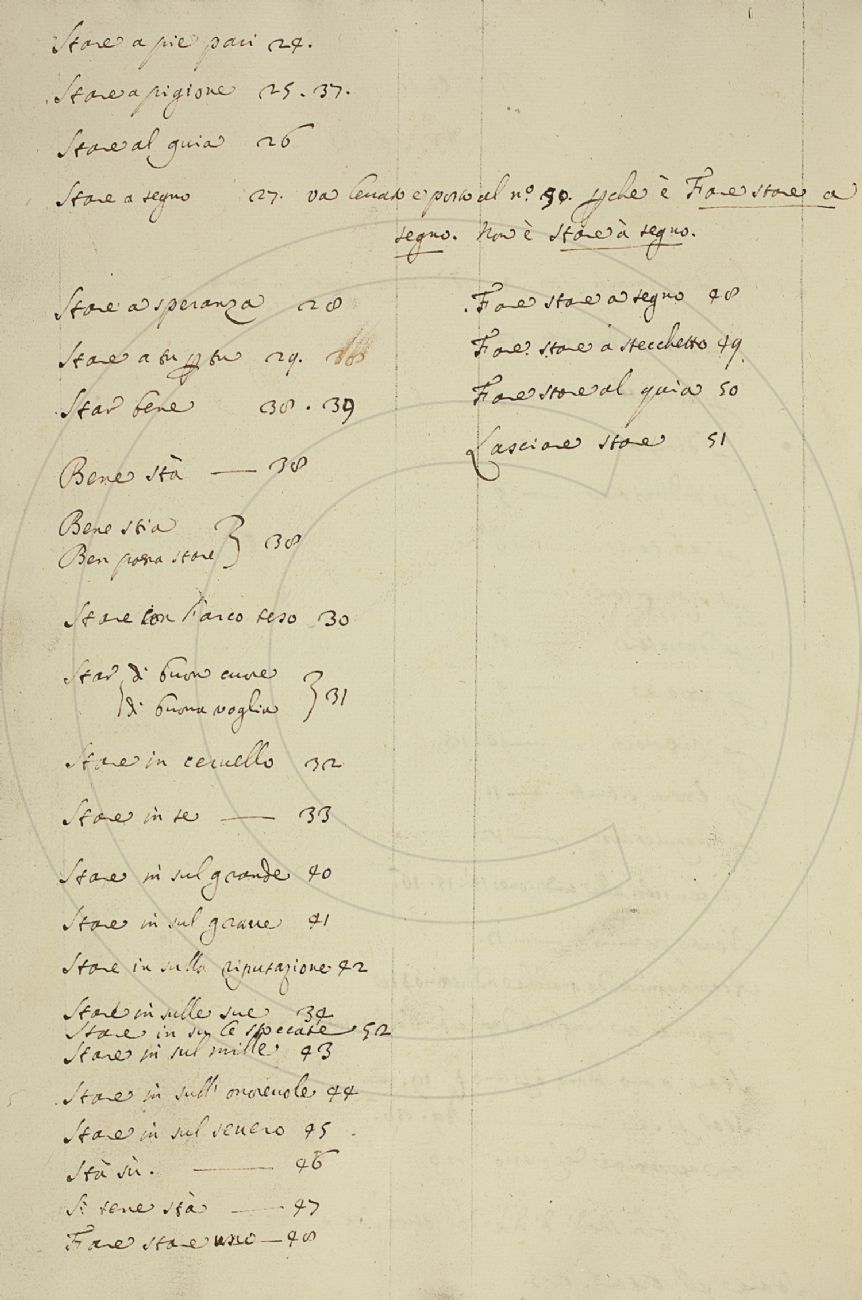 Stare a piè pari 24.
Stare a pigione 25. 37.
Stare al quia 26
Stare a segno 27. va levato e posto al n.º 50. pche è Fare stare a
segno. Non è stare à segno.
Stare a speranza 28
Stare a tu p tu 29.
Star bene 38. 39
Bene stà — 38
Bene stia
Ben possa stare } 38
Stare con l'arco teso 30
Star { di buon cuore
{ di buona voglia } 31
Stare in cervello 32
Stare in se — 33
Stare in sul grande 40
Stare in sul grave 41
Stare in sulla riputazione 42
Stare in sulle sue 34
Stare in su le speccate 52
Stare in sul mille 43
Stare in sull' onorevole 44
Stare in sul severo 45
Stà sù. — 46
Si tene stà — 47
Fare stare uno — 48
Fare stare a segno 48
Fare stare a stecchetto 49
Fare stare al quia 50
Lasciare stare 51